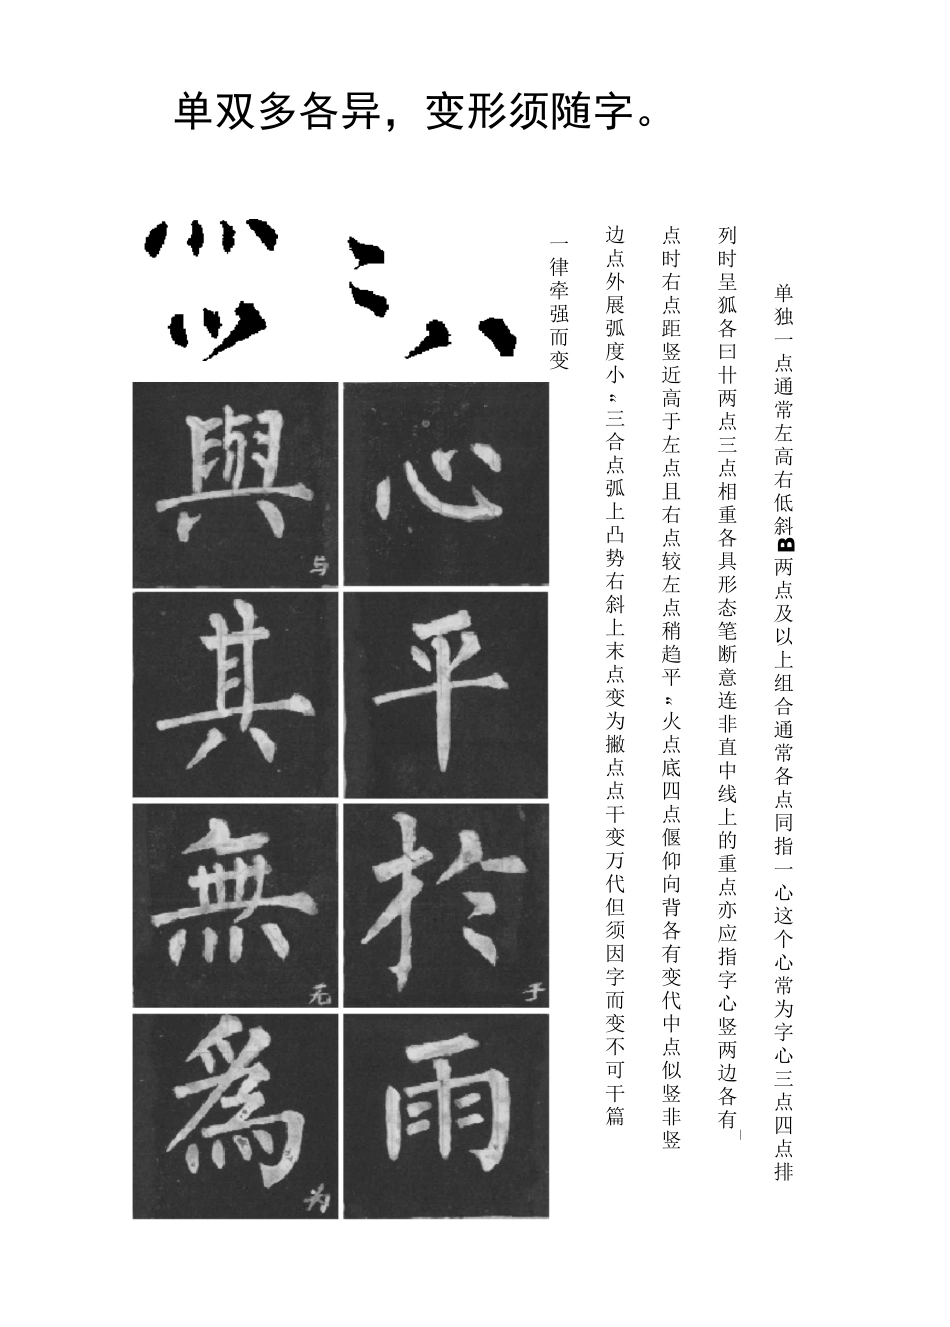 单双多各异，变形须随字。
单独一点通常左高右低斜B两点及以上组合通常各点同指一心这个心常为字心三点四点排
列时呈狐各曰廿两点三点相重各具形态笔断意连非直中线上的重点亦应指字心竖两边各有
点时右点距竖近高于左点且右点较左点稍趋平〃火点底四点偃仰向背各有变代中点似竖非竖
边点外展弧度小〃三合点弧上凸势右斜上末点变为撇点点干变万代但须因字而变不可干篇
一律牵强而变
心
平
於
于
雨
與
与
其
無
无
爲
为